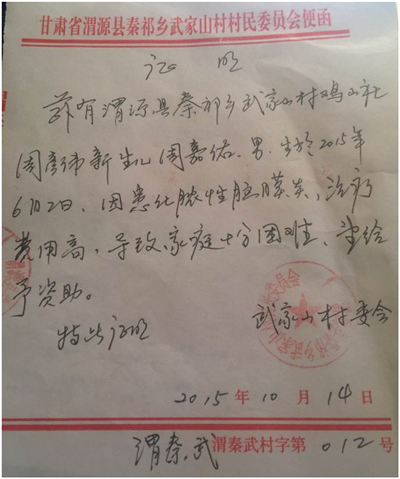 甘肃省渭源县秦祁乡武家山村村民委员会便函
证 明
兹有渭源县秦祁乡武家山村鸡山社
周彦伟新生儿周嘉佑、男、生於2015年
6月2日、因患化脓性脑膜炎,治疗
费用高,导致家庭十分困难、望给
予资助。
特此证明
武家山村委会
2015年10月14日
渭秦武 渭秦武村字第012号